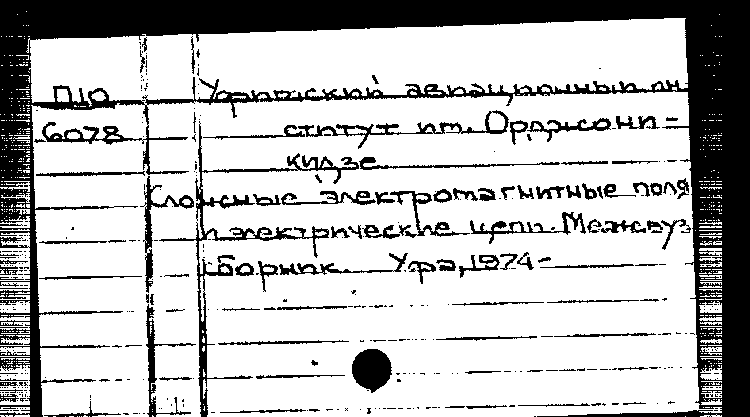 П10 Уфимский авиационный ин-
6078 ститут им. Орджони-
кидзе
Сложные электромагнитные поля
и электрические цепи. Межвуз
сборник. Уфа, 1974-